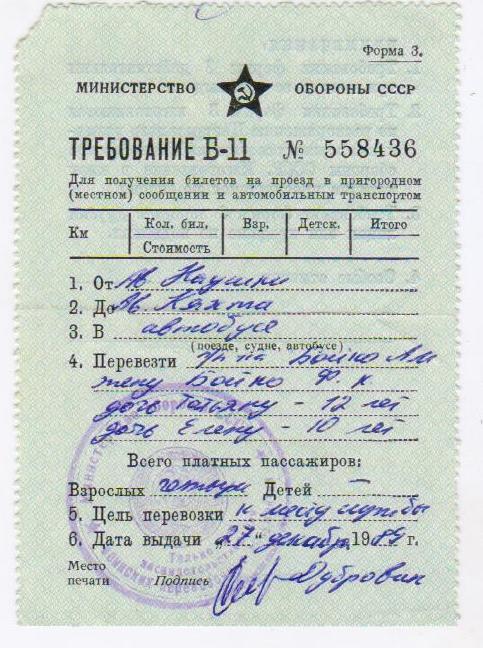 Форма 3.
МИНИСТЕРСТВО ОБОРОНЫ СССР
ТРЕБОВАНИЕ Б-11 № 558436
Для получения билетов на проезд в пригородном
(местном) сообщении и автомобильным транспортом
Км Кол. бил. Взр. Детск. Итого
Стоимость
1. От Ав Наушки
2. До Ав. Кяхта
3. В автобусе
(поезде, судне, автобусе)
4. Перевезти п/п-ка Бойко А.М
жену Бойко Ф. К
дочь Татьяну - 12 лет
дочь Елену - 10 лет
Всего платных пассажиров:
Взрослых четыре Детей —
5. Цель перевозки к месту службы
6. Дата выдачи „27" декабр 1989 г.
Место
печати Подпись Дубровин